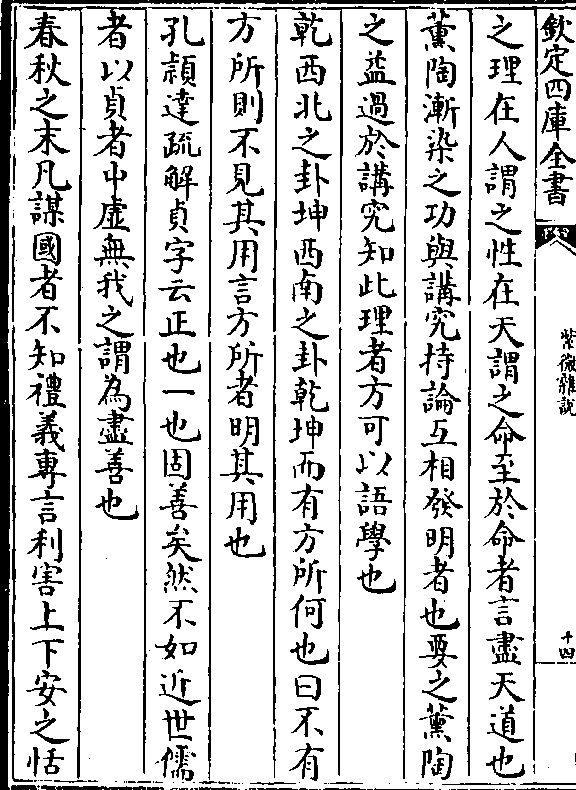 欽定四庫全書
紫微雜說
十四
之理在人謂之性在天謂之命至於命者言盡天道也
薰陶漸染之功與講究持論互相發明者也要之薰陶
之益過於講究知此理者方可以語學也
乾西北之卦坤西南之卦乾坤而有方所何也曰不有
方所則不見其用言方所者明其用也
孔穎達疏解貞字云正也一也固善矣然不如近世儒
者以貞者中虛無我之謂為盡善也
春秋之末凡謀國者不知禮義專言利害上下安之恬